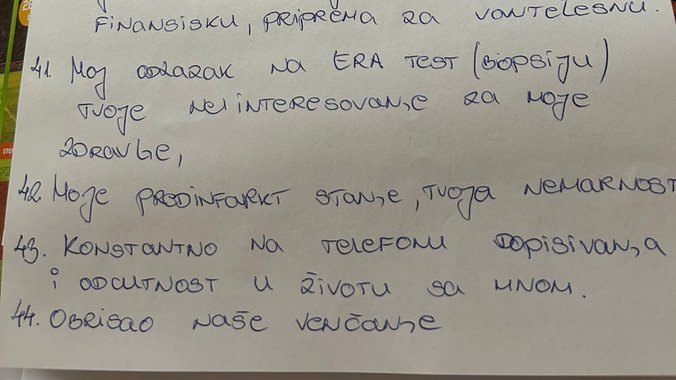 FINANSISKU, PRIPREMA ZA VANTELESNU.
41 MOJ ODLAZAK NA ERA TEST (BIOPSIJU)
TVOJE NEIINTERESOVANJE ZA MOJE
ZDRAVLJE,
42 MOJE PREDINFARKT STANJE, TVOJA NEMARNOST
43. KONSTANTNO NA TELEFONU DOPISIVANJA
I ODCUTNOST U ŽIVOTU SA MNOM.
44. OBRISAO NAŠE VENČANJE